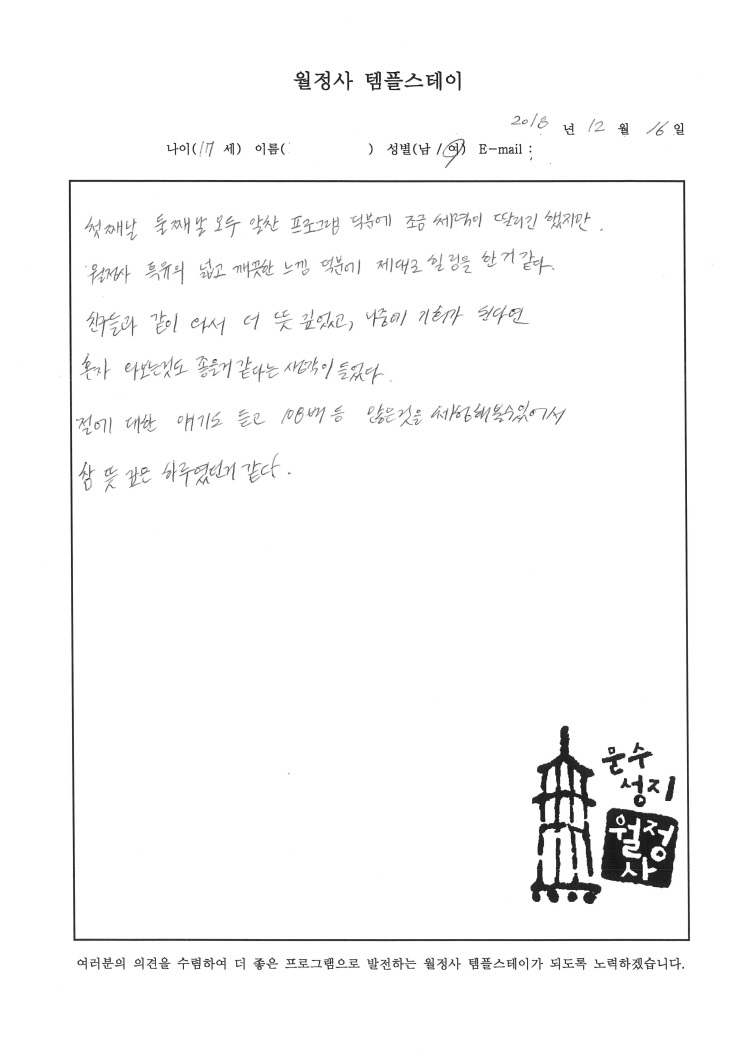 월정사 템플스테이
2018 년 12 월 16 일
나이(17 세) 이름( ) 성별(남 / 여) E-mail :
첫째날 둘째날 모두 알찬 프로그램 덕분에 조금 체력이 딸리긴 했지만.
월정사 특유의 넓고 깨끗한 느낌 덕분에 제대로 힐링을 한거 같다.
친구들과 같이 와서 더 뜻 깊었고, 나중에 기회가 된다면
혼자 와보는것도 좋을거 같다는 생각이 들었다.
절에 대한 얘기도 듣고 108배 등 많은것을 체험해볼수있어서
참 뜻 깊은 하루였던거 같다.
문수
성지
월정
사
여러분의 의견을 수렴하여 더 좋은 프로그램으로 발전하는 월정사 템플스테이가 되도록 노력하겠습니다.